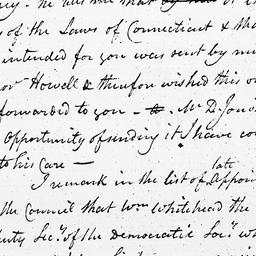 ney - he tells me that by
of the Laws of Connecticut & tha
intended for you was sent by m
or Howell & therefore wished this o
forwarded to you - Mr D. Jones
Opportunity of sending it I have co
to his Care —
late
I remark in the list of Appoin
the Council that Wm Whitehead the
puty Secy. of the Democratic Soc.y w